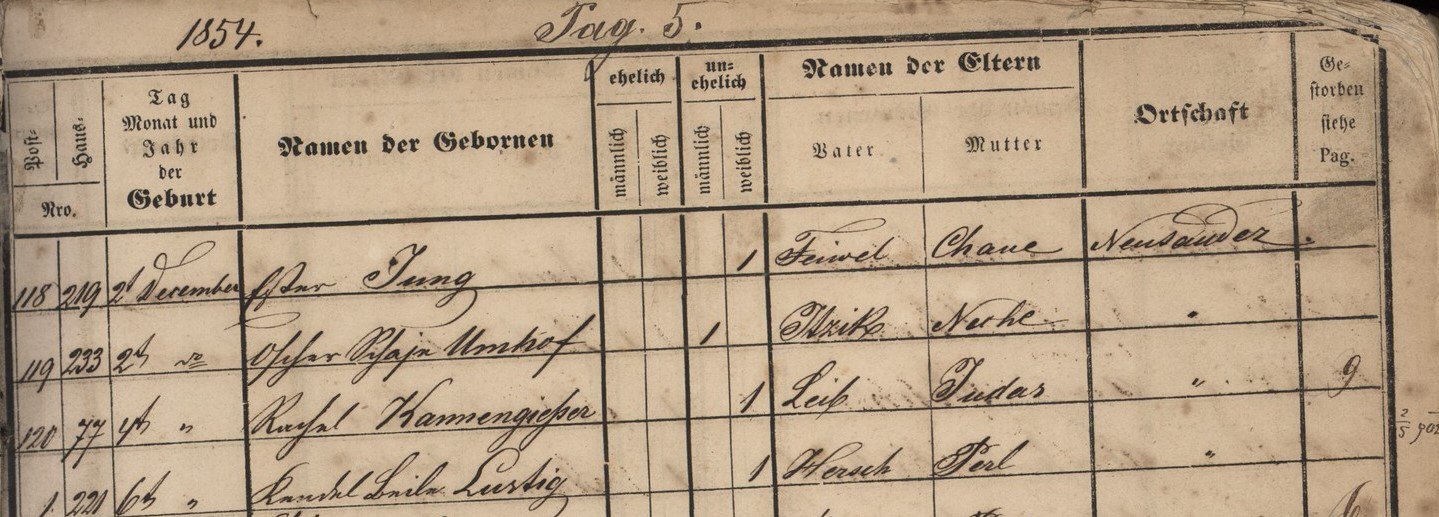 1854. Pag. 5.
Post- Haus- Nro.
Tag Monat und Jahr der Geburt
Namen der Gebornen
ehelich männlich weiblich
un-ehelich männlich weiblich
Namen der Eltern
Vater Mutter
Ortschaft
Ge-storben siehe Pag.
118 219 2t December Ester Jung 1 Feiwel Chane Neusandez.
119 233 2t do Oscher Schaje Umhof 1 Itzik Neche "
120 77 4t " Rachel Kannengießer 1 Leib Judas " 9
1 221 6t " Kendel Beile Lustig 1 Hersch Perl "